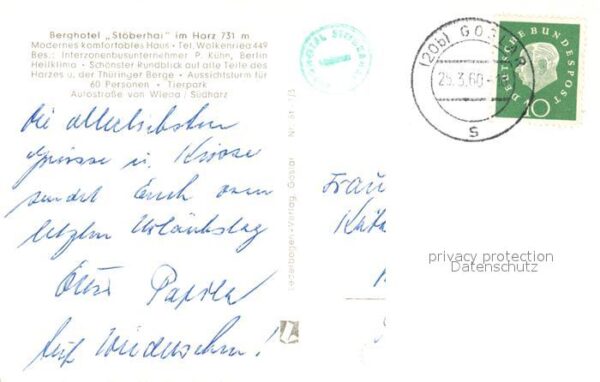 Berghotel „Stöberhai" im Harz 731 m
Modernes komfortables Haus · Tel. Walkenried 449
Bes.: Interzonenbusunternehmer P. Kühn, Berlin
Heilklima · Schönster Rundblick auf alle Teile des
Harzes u. der Thüringer Berge · Aussichtsturm für
60 Personen · Tierpark
Autostraße von Wieda / Südharz
Die allerliebsten
Grüsse u. Küsse
sendet Euch vom
letzten Urlaubstag
Euer
Auf Wiedersehn!
Lederbogen-Verlag, Goslar Nr. 51
(20b) GOSLAR
25.3.60
s
DEUTSCHE BUNDESPOST
10
Frau
privacy protection
Datenschutz